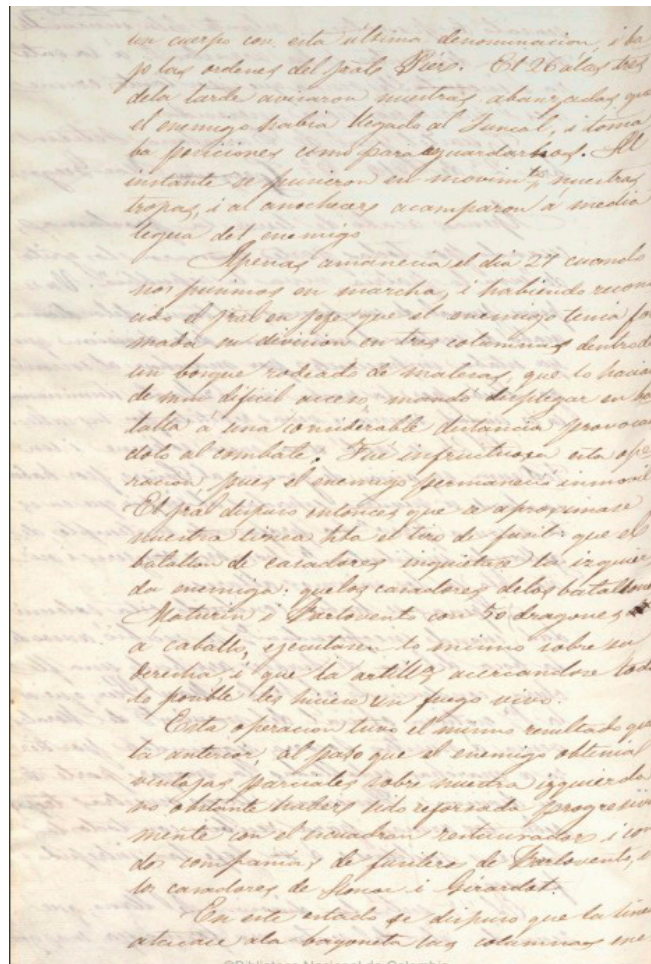 un cuerpo con esta última denominacion, i ba
jo las ordenes del gral. Piar. El 26 á las tres
dela tarde avisaron nuestras abanzadas, que
el enemigo habia llegado al Juncal, i toma
ba posiciones como para aguardarnos. Al
instante se pusieron en movimto. nuestras
tropas, i al anochecer acamparon á media
legua del enemigo
Apenas amanecia el dia 27 cuando
nos pusimos en marcha, i habiendo recono
cido el gral en gefe que el enemigo tenia for
mada su division en tres columnas dentro de
un bosque rodeado de malezas, que lo hacian
de mui dificil acceso, mandó desplegar en ba
talla á una considerable distancia provocan
dolo al combate. Fué infructuosa esta ope
racion, pues el enemigo permanecio inmovil
El gral dispuso entonces, que se aproximase
nuestra linea hta el tiro de fusil: que el
batallon de casadores inquietase la izquier
da enemiga: quelos casadores delos batallones
Maturin i Barlovento con 50 dragones
a caballo, ejecutasen lo mismo sobre su
derecha, i que la artillª acercandose todo
lo posible les hiciese un fuego vivo.
Esta operacion tuvo el mismo resultado que
la anterior, al paso que el enemigo obtenia
ventajas parciales sobre nuestra izquierda
no obstante haber sido reforsada progresiva
mente con el escuadron restaurador i con
dos compañias de fusileros de Barlovento, i
los casadores de Honor i Girardot.
En este estado se dispuso que la linea
atacase ala bayoneta las columnas ene
©Biblioteca Nacional de Colombia